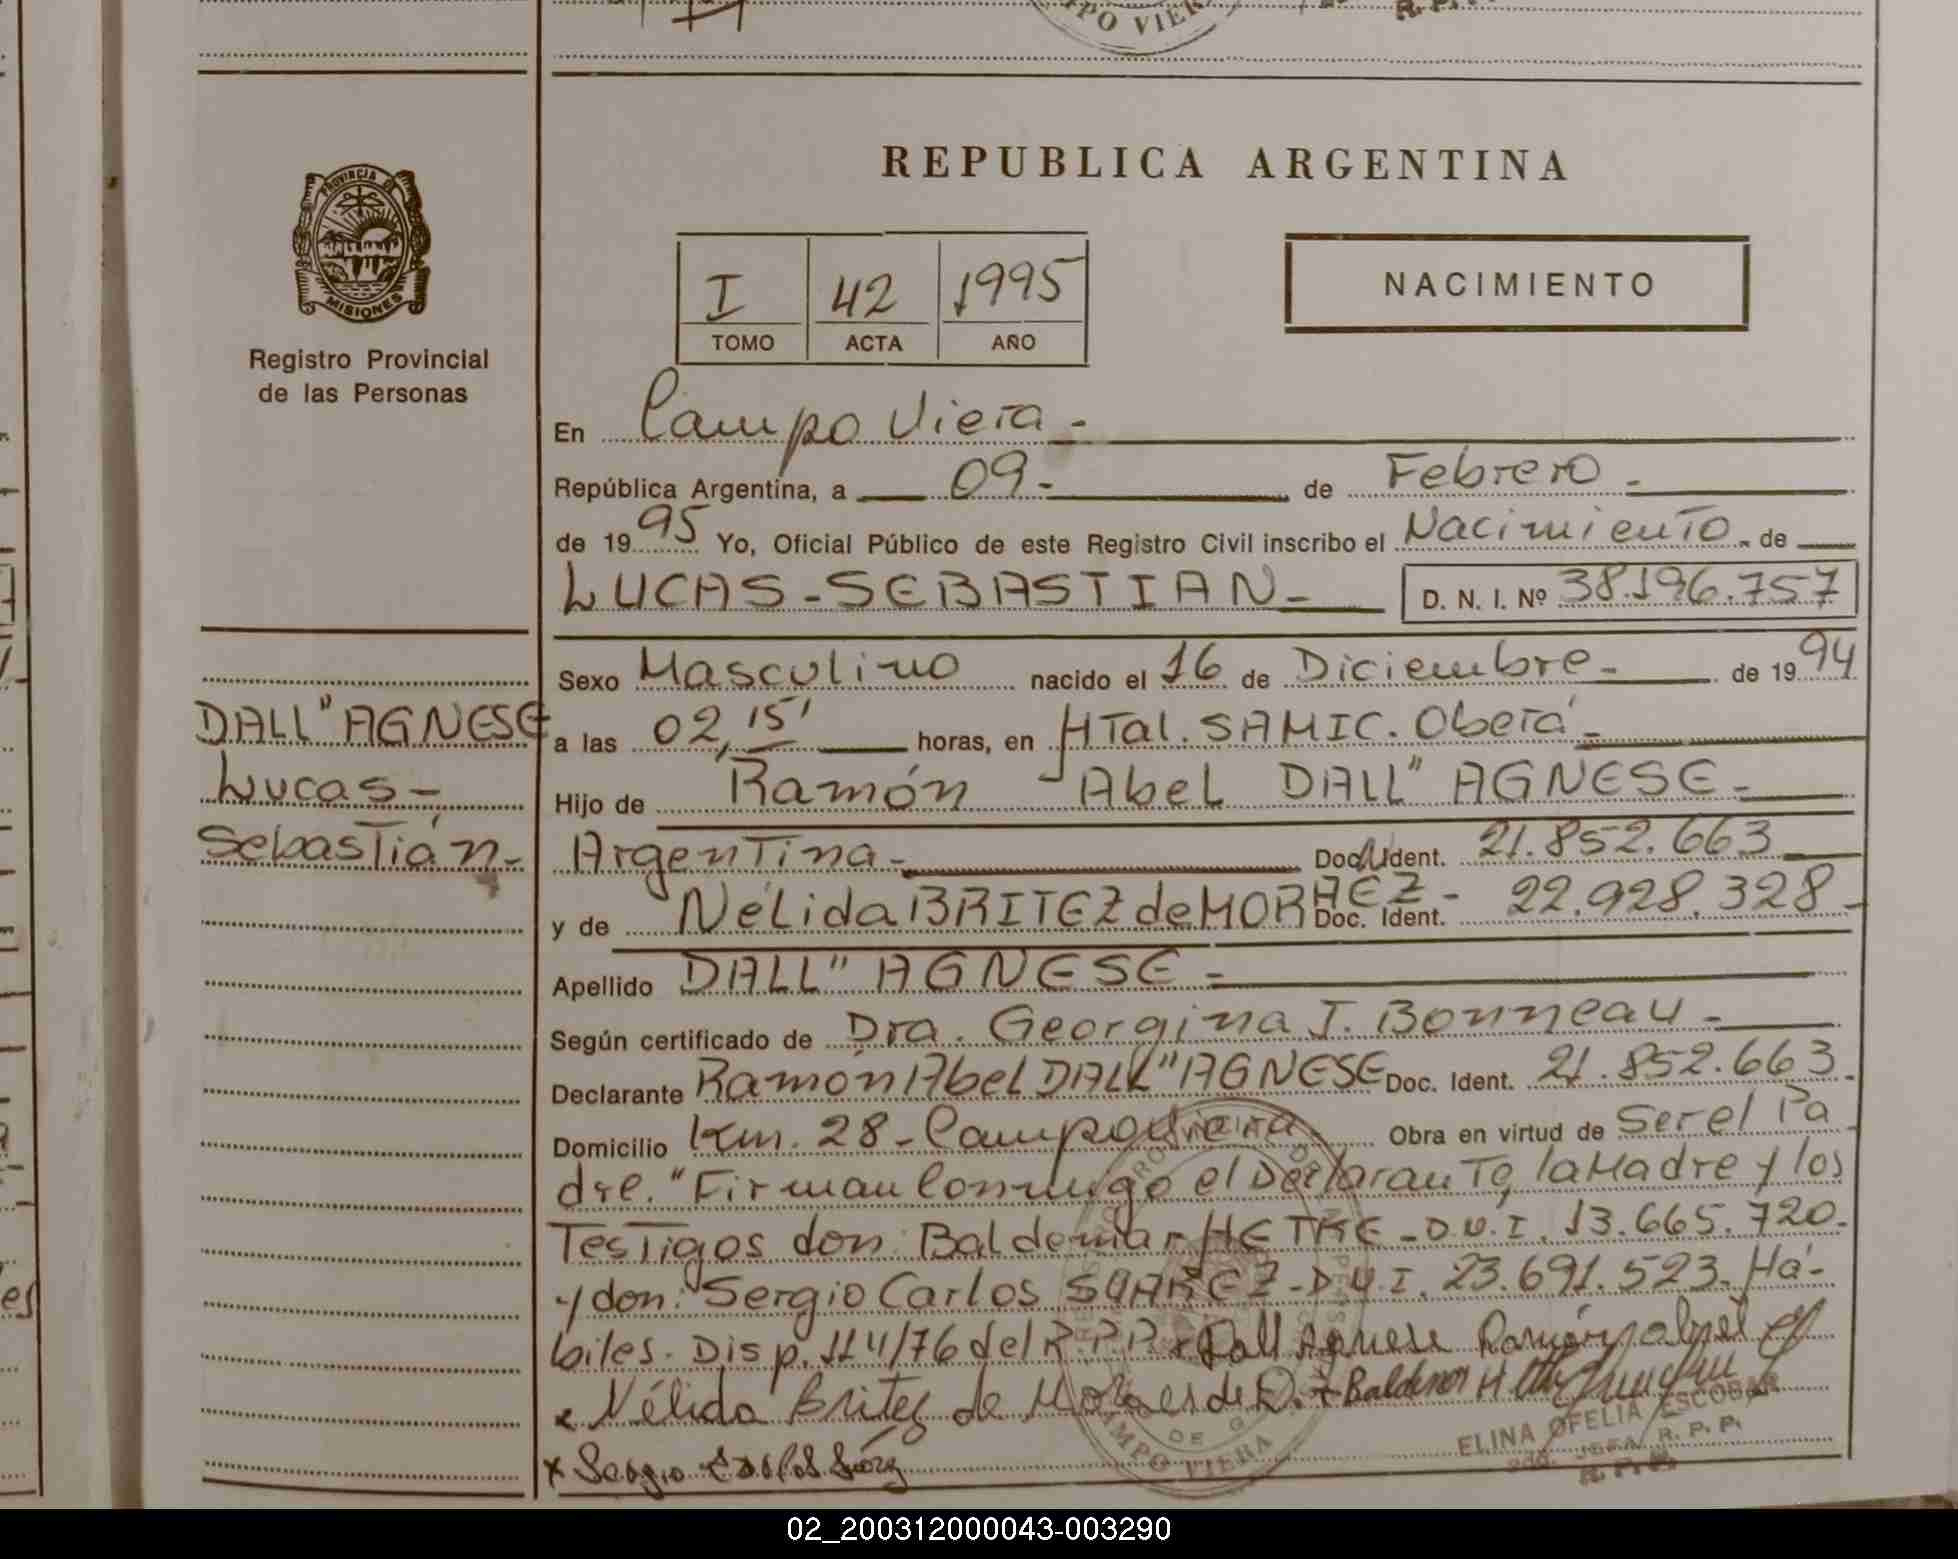 PO VIER
R.P.
PROVINCIA DE
MISIONES
Registro Provincial
de las Personas
REPUBLICA ARGENTINA
I 42 1995
TOMO ACTA AÑO
NACIMIENTO
En Campo Viera -
República Argentina, a 09.- de Febrero -
de 1995 Yo, Oficial Público de este Registro Civil inscribo el Nacimiento - de
LUCAS - SEBASTIAN - D. N. I. Nº 38.196.757
Sexo Masculino nacido el 16 de Diciembre - de 1994
DALL" AGNESE
Lucas -
Sebastián -
a las 02,15' horas, en HTal. SAMIC. Oberá -
Hijo de Ramón Abel DALL" AGNESE -
Argentina - Doc. Ident. 21.852.663
y de Nélida BRITEZ de MORAEZ - Doc. Ident. 22.928.328 -
Apellido DALL" AGNESE -
Según certificado de Dra. Georgina I. Bonneau -
Declarante Ramón Abel DALL" AGNESE Doc. Ident. 21.852.663
Domicilio Km. 28 - Campo Viera Obra en virtud de Ser el Pa
dre. "Firman Conmigo el Declarante, la Madre y los
Testigos don: Baldemar HETKE - D.N.I. 13.665.720.
y don: Sergio Carlos SUAREZ - D.N.I. 23.691.523. Há-
biles. Disp. 114/76 del R.P.P. x Dall Agnese Ramón Abel
x Nélida Britez de Moraes de D. x Baldemar H
ELINA OFELIA ESCOBAR
JEFA R. P. P.
x Sergio Carlos Suárez
CAMPO VIERA
02_200312000043-003290